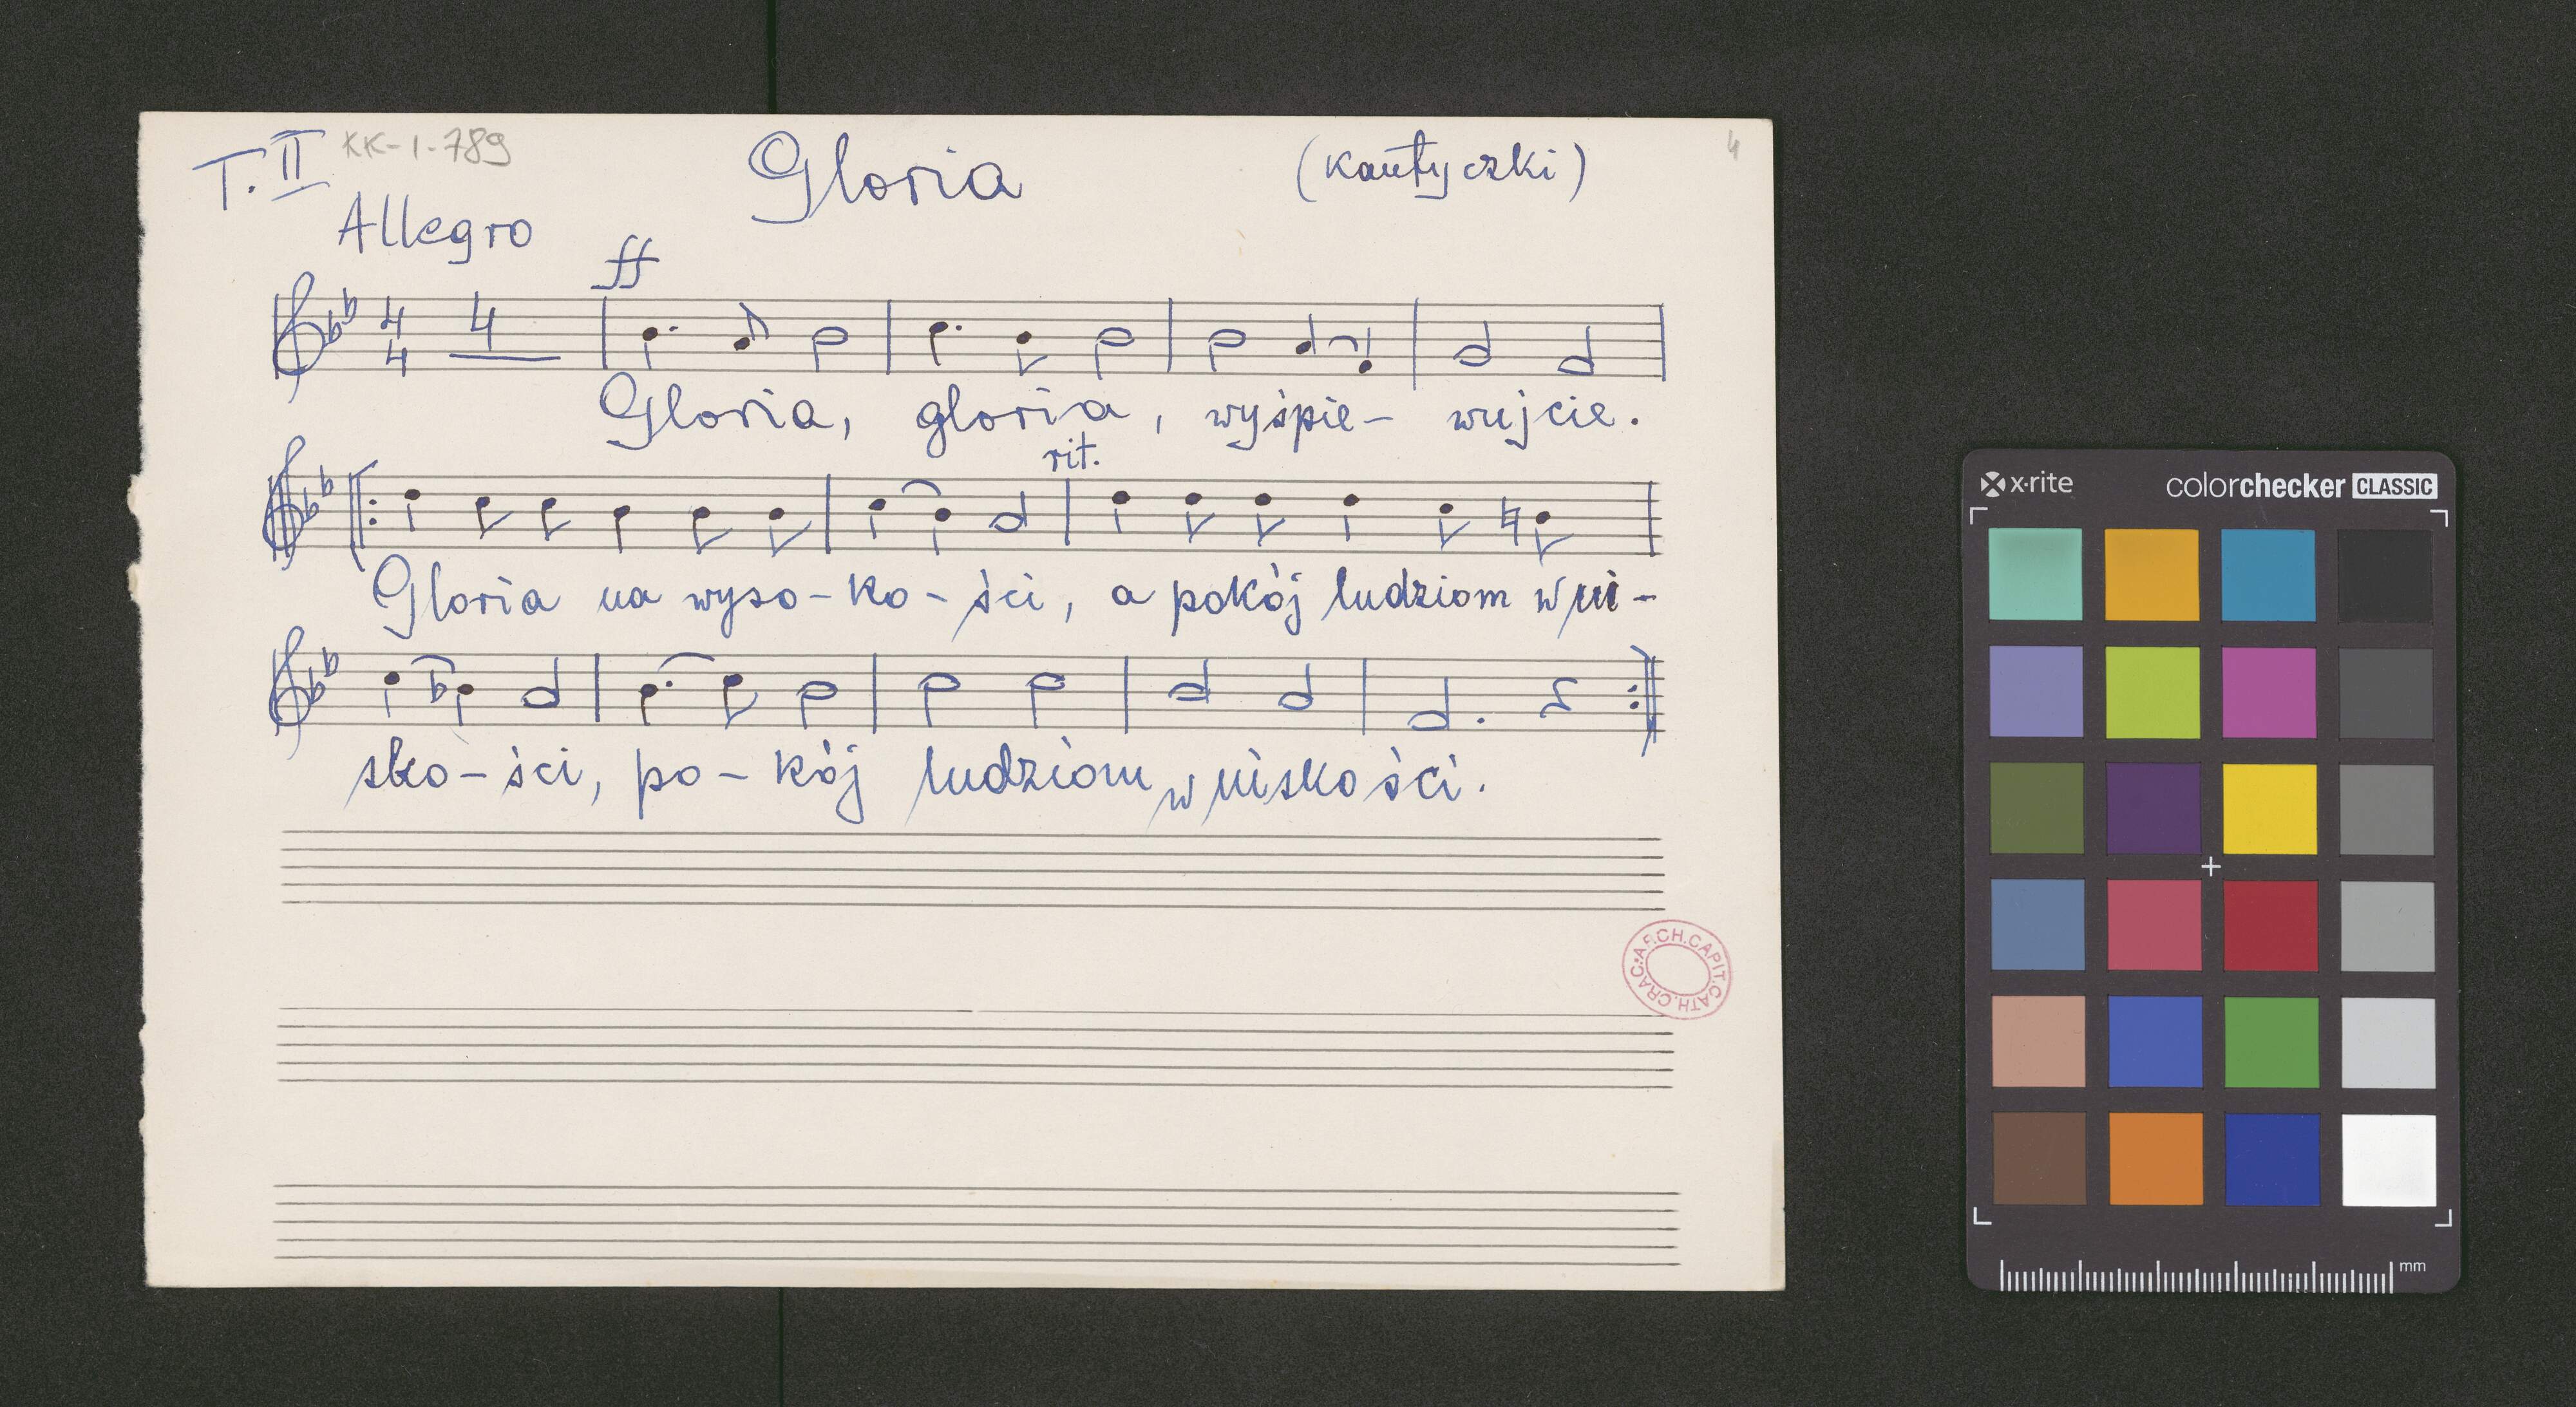 T. II KK-I-789 Gloria (Kantyczki) 4
Allegro
ff
4 4 4
Gloria, gloria, wyśpie- wujcie.
rit.
Gloria na wyso-ko-ści, a pokój ludziom w ni-
sko-ści, po-kój ludziom w niskości.
ARCH.CAPIT.CATH.CRAC.
x-rite colorchecker CLASSIC
mm